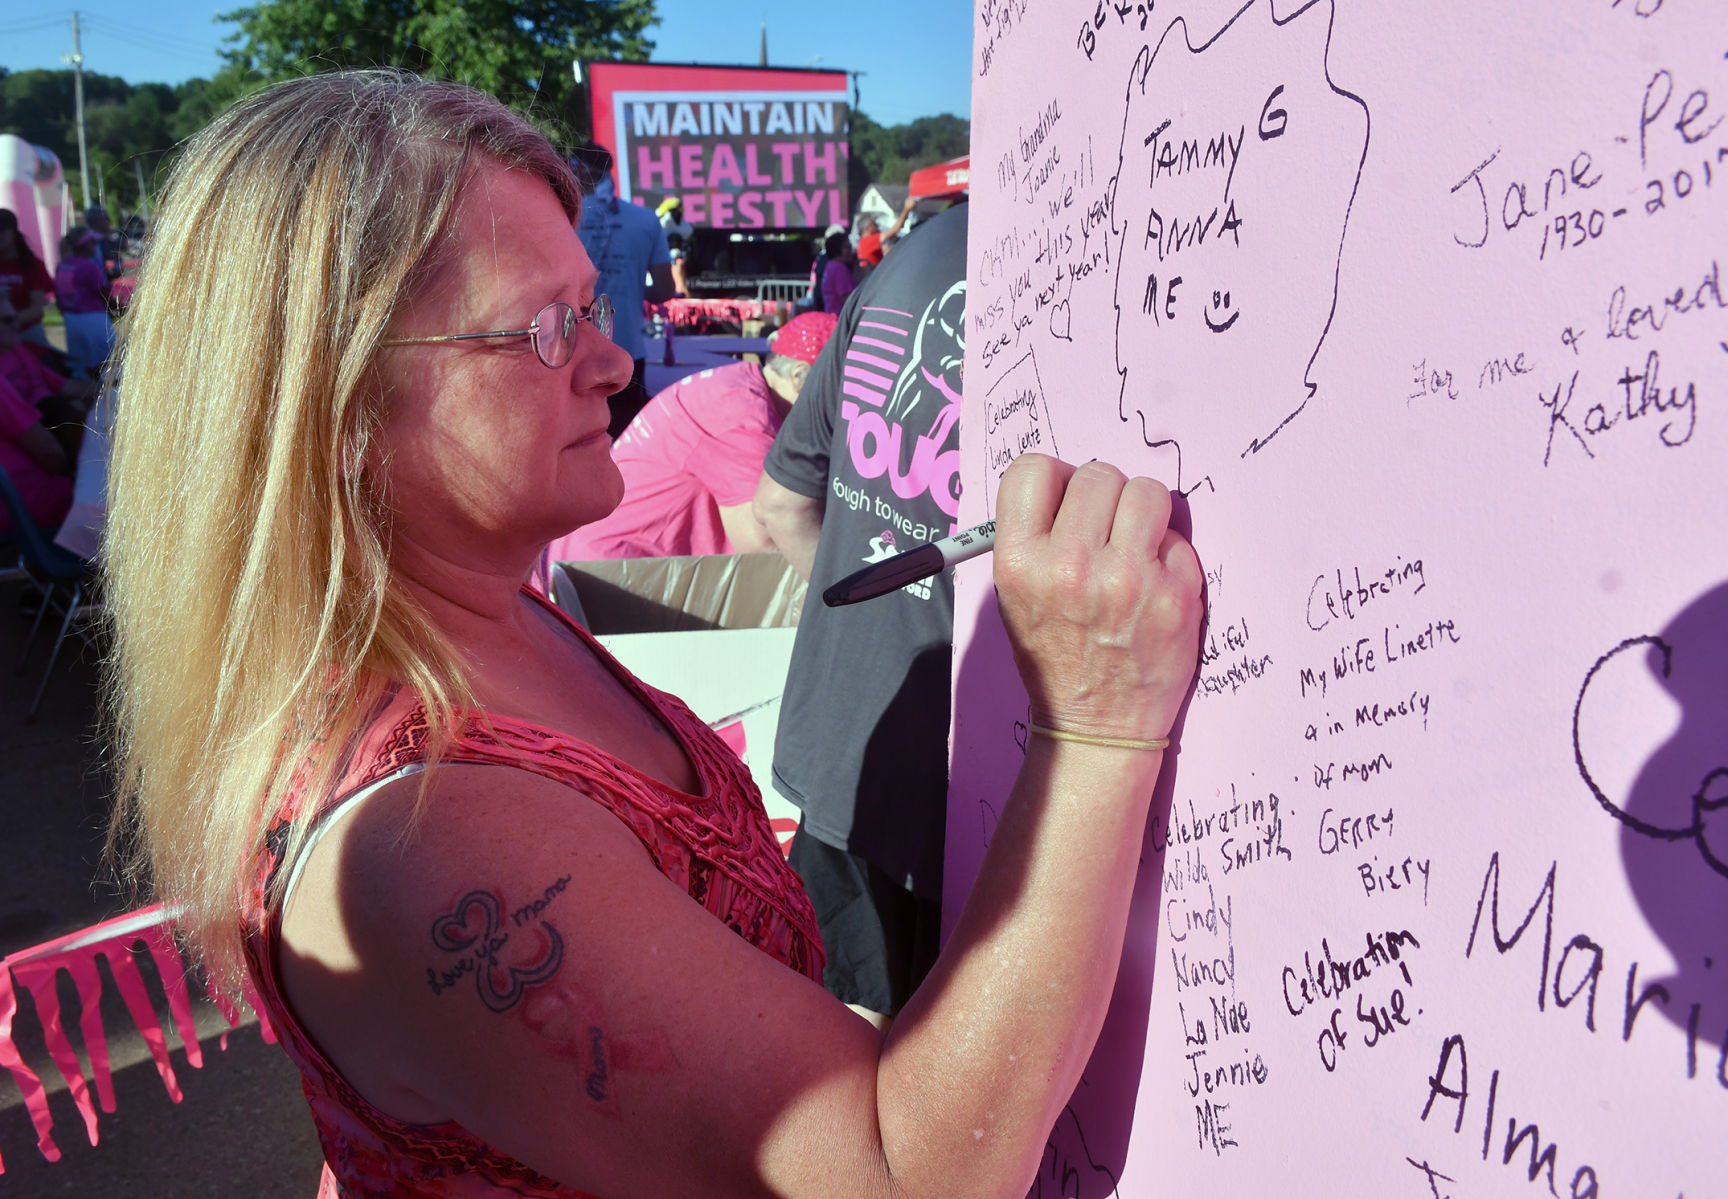 MAINTAIN
HEALTHY
LIFESTYL
TOUG
ough to wear
FINE
POINT
love ya mama
Mama
My Grandma
Joanie
we'll
miss you this year
see ya next year!
Celebrating
Linda Lentz
TAMMY G
ANNA
ME
Jane Pe
1930-2017
For me & loved
Kathy
Daughter
Celebrating
My Wife Linette
& in Memory
Of Mom
GERRY
Biery
Celebrating
Wilda Smith
Cindy
Nancy
La Nae
Jennie
ME
Celebration
of Sue!
Mari
Alma